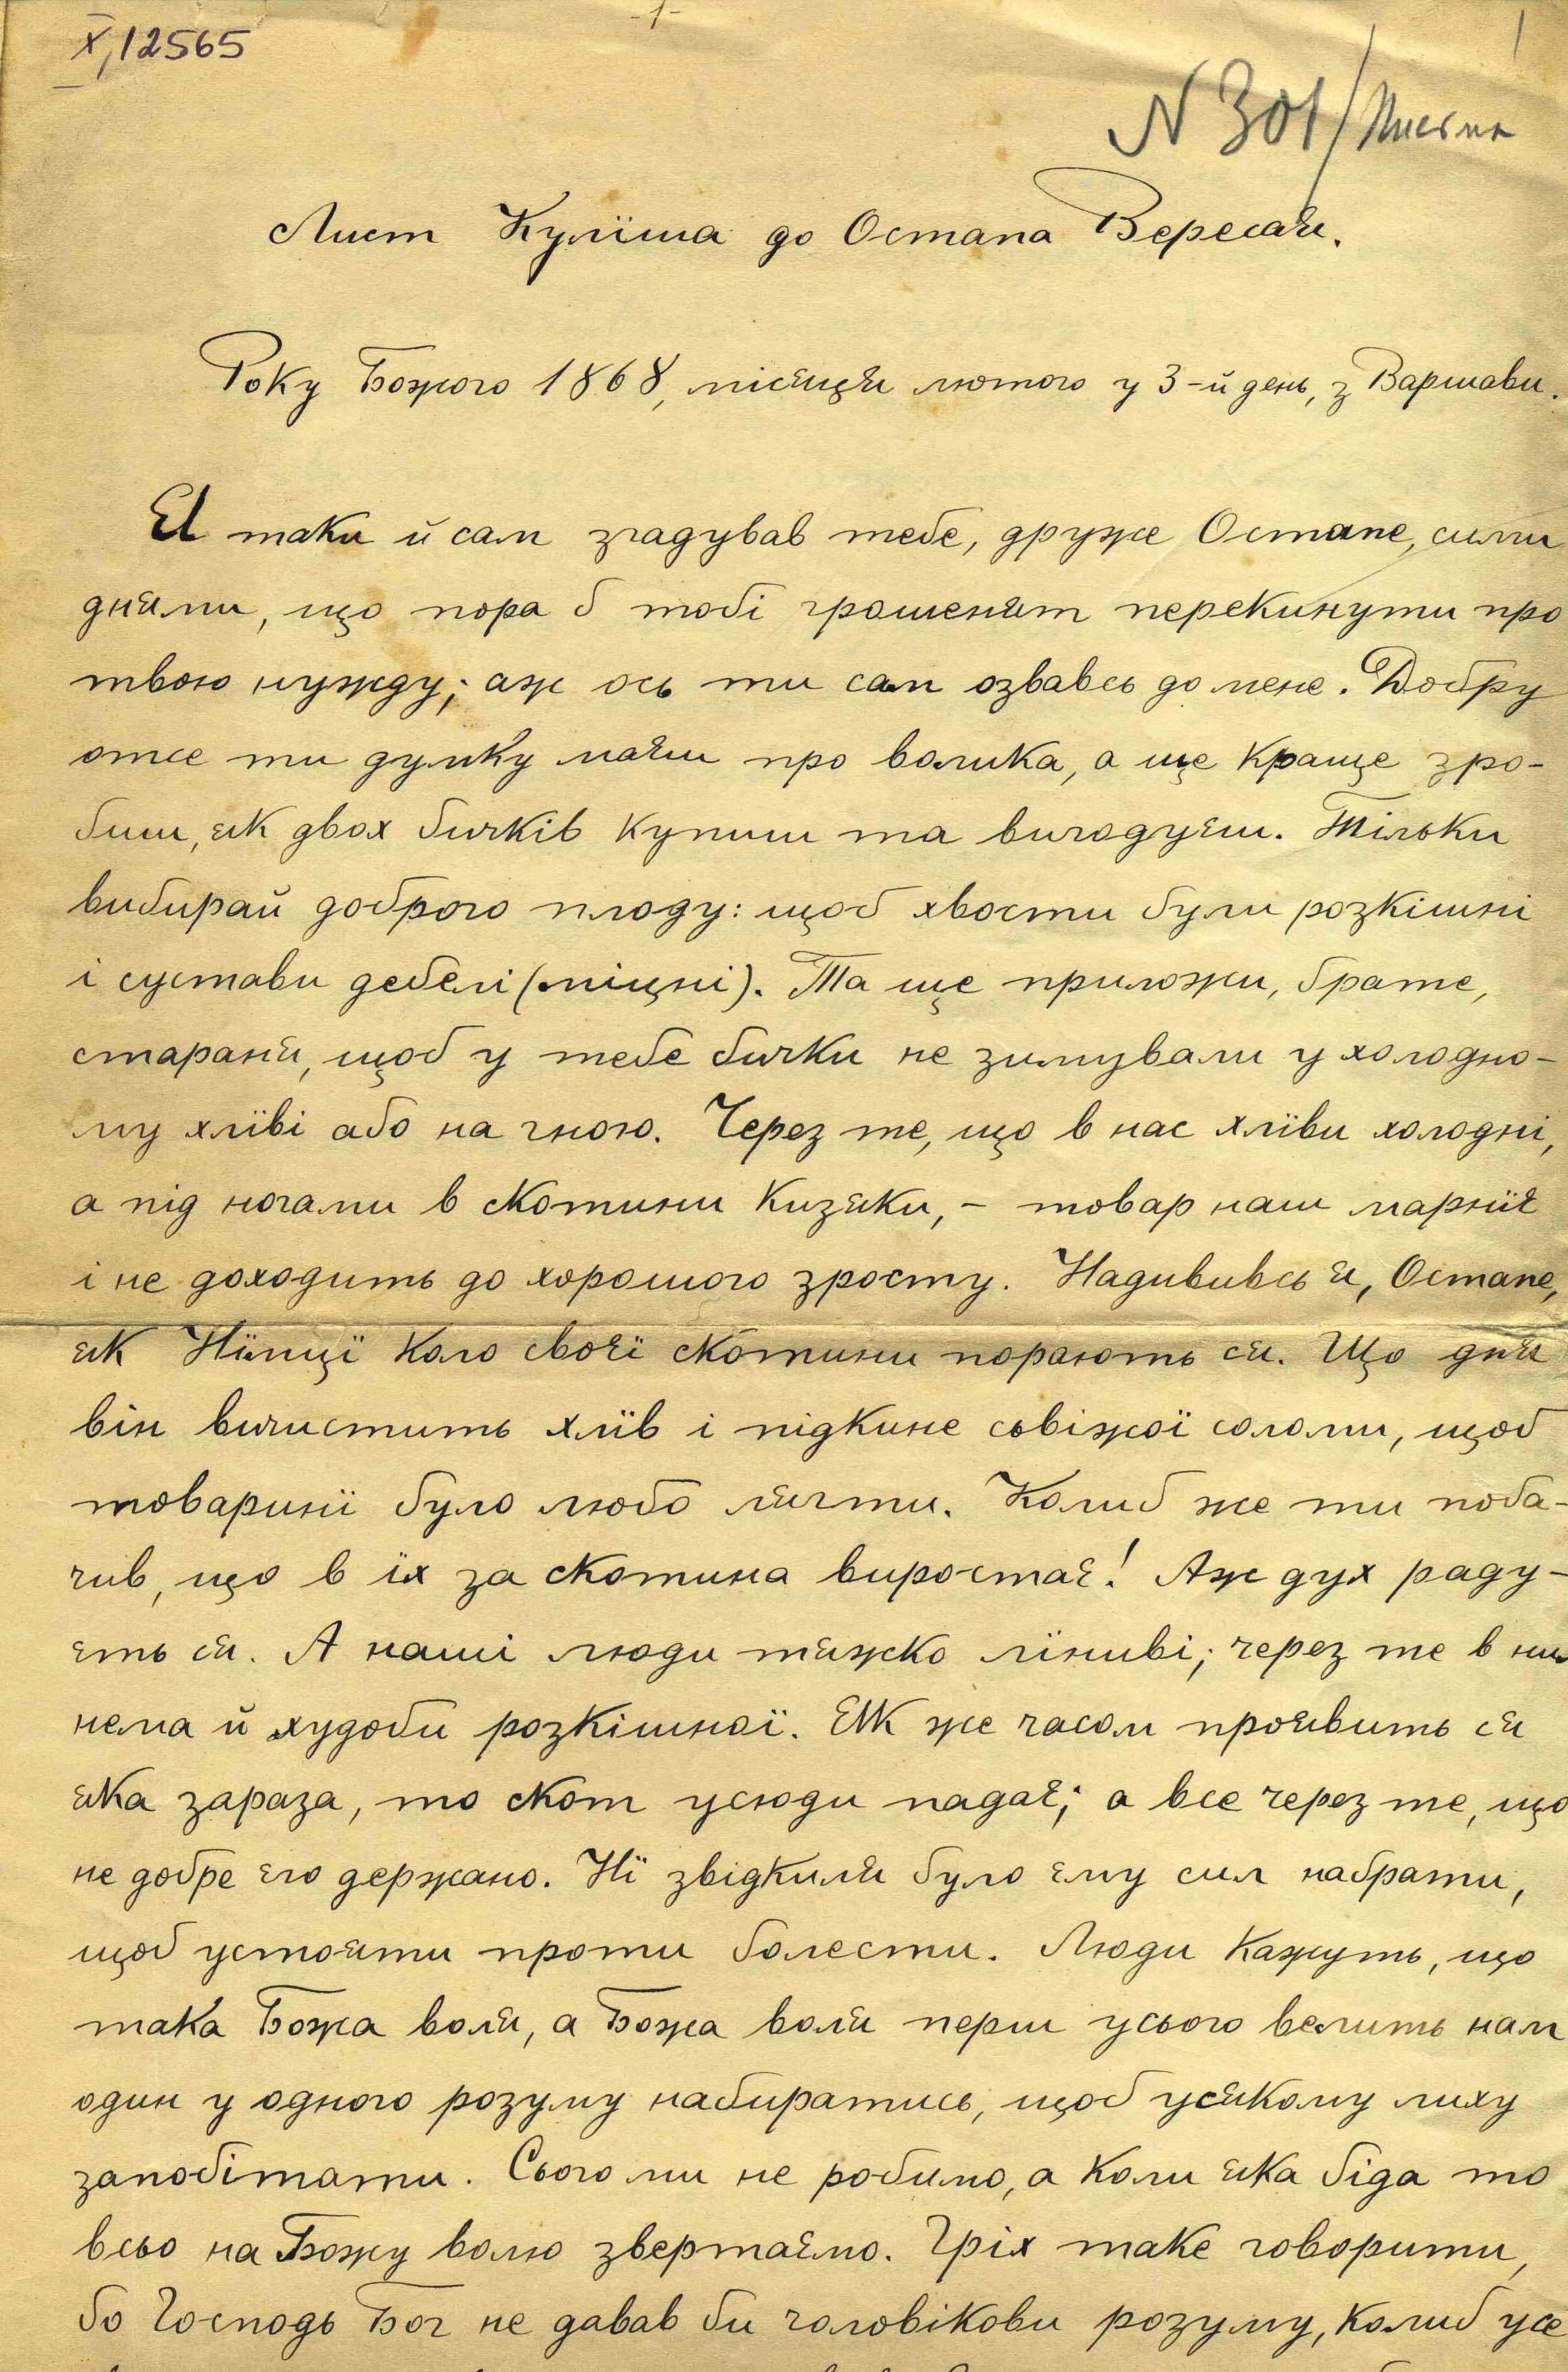 -1-
X,12565
1
N 301/Письма
Лист Кулїша до Остапа Вересая.
Року Божого 1868, місяця лютого у 3-й день, з Варшави.
Я таки й сам згадував тебе, друже Остапе, сими
днями, що пора б тобі грошенят перекинути про
твою нужду; аж ось ти сам озвавсь до мене. Добру
отсе ти думку маєш про волика, а ще краще зро-
биш, як двох бичків купиш та вигодуєш. Тілько
вибирай доброго плоду: щоб хвости були розкішні
і сустави дебелі (міцні). Та ще приложи, брате,
стараня, щоб у тебе бички не зимували у холодно-
му хлїві або на гною. Через те, що в нас хлїви холодні,
а під ногами в скотини кизяки, – товар наш марніє
і не доходить до хорошого зросту. Надививсь я, Остапе,
як Нїмцї коло своєї скотини порають ся. Що дня
він вичистить хлїв і підкине сьвіжої соломи, щоб
товаринї було любо лягти. Колиб же ти поба-
чив, що в їх за скотина виростає! Аж дух раду-
єть ся. А наші люди тяжко лїниві; через те в них
нема й худоби розкішної. Як же часом проявить ся
яка зараза, то скот усюди падає; а все через те, що
не добре єго держано. Нї звідкиля було єму сил набрати,
щоб устояти проти болести. Люди кажуть, що
така Божа воля, а Божа воля перш усього велить нам
один у одного розуму набиратись, щоб усякому лиху
запобігати. Сього ми не робимо, а коли яка біда то
всьо на Божу волю звертаємо. Гріх таке говорити,
бо Господь Бог не давав би чоловікови розуму, колиб усе